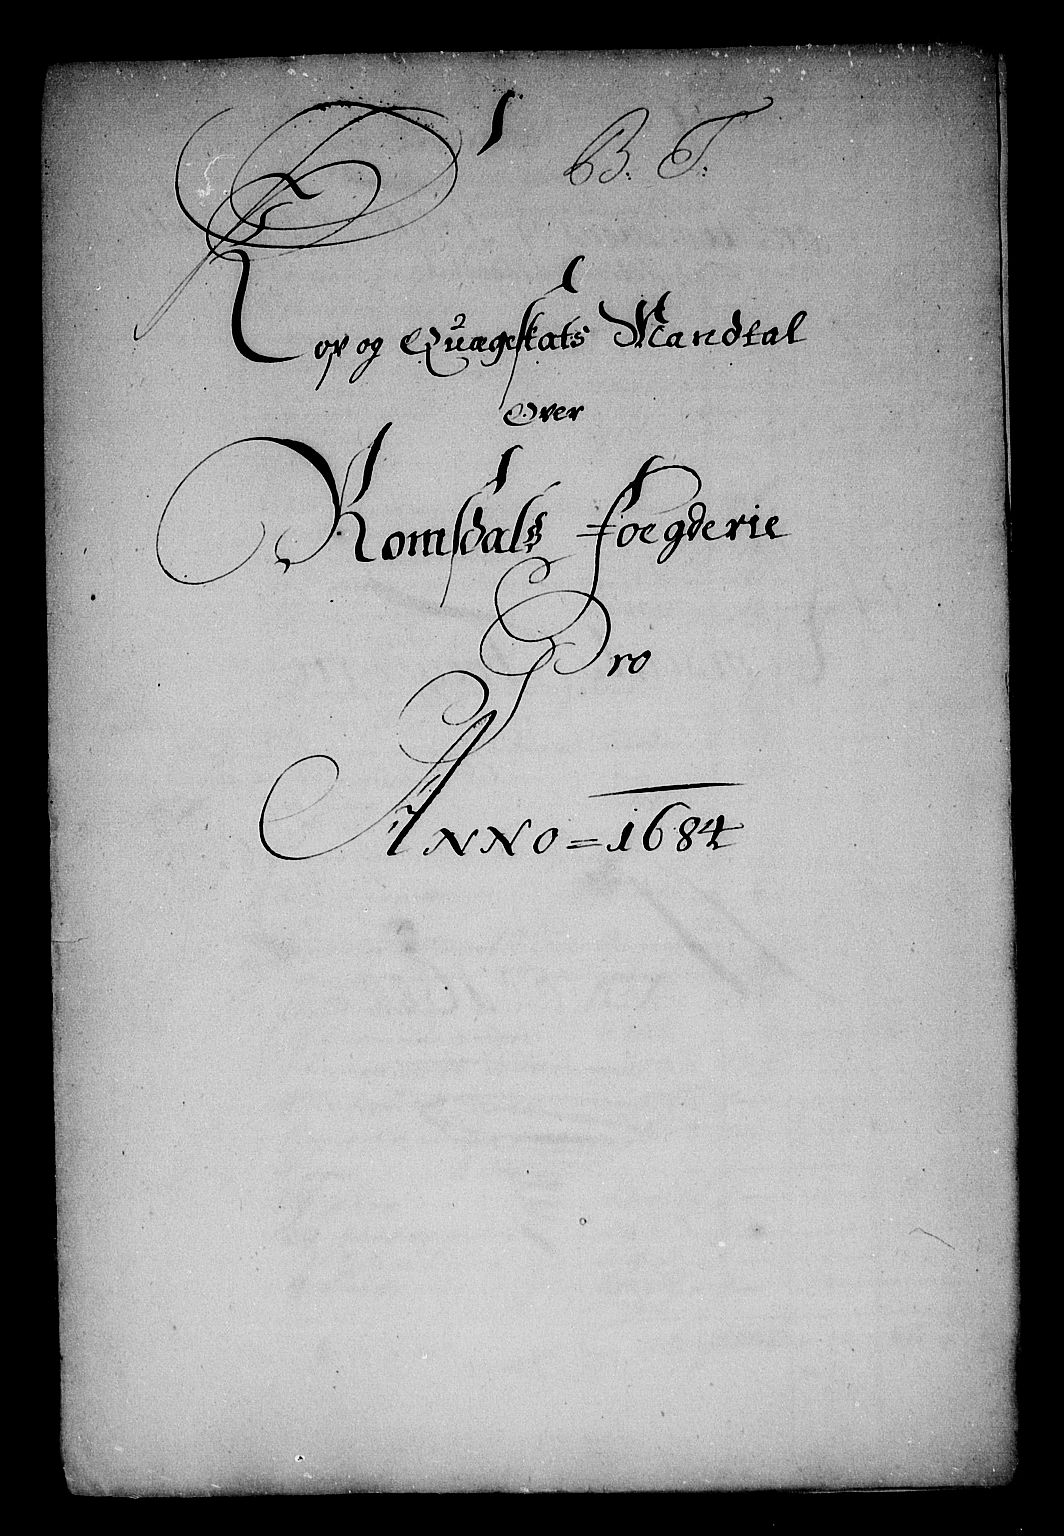 B. T.
Kop og Quægskats Mandtal
Over
Romsdals foegderie
Pro
ANNO = 1684